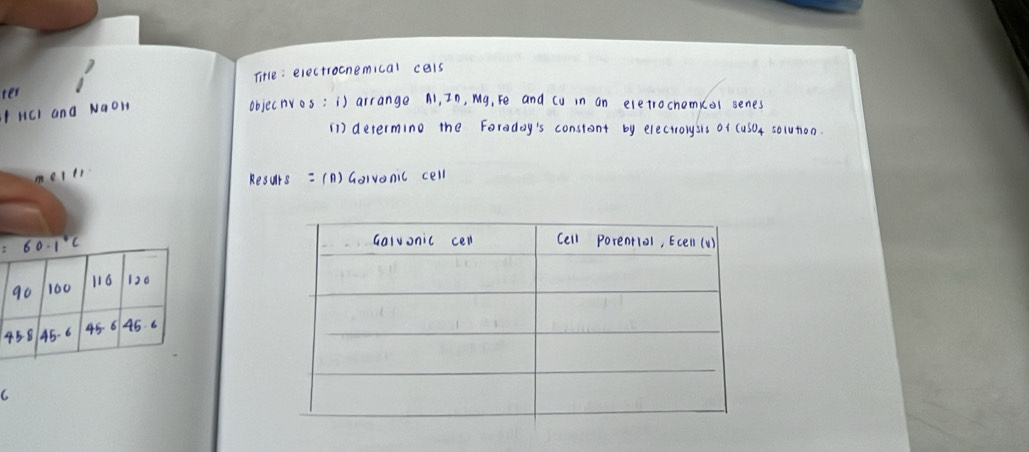 ter
f HCl and NaOH
= 60.1°C
90 100 110 120
45.8 45.6 45.6 45.6
Title: electrochemical cels
objectives: i) arrange Al, Zn, Mg, Fe and Cu in an eletrochemical series
ii) determine the Faraday's constant by electrolysis of CuSO4 solution.
Results = (A) Galvanic cell
Galvanic cell Cell Potential, Ecell (V)